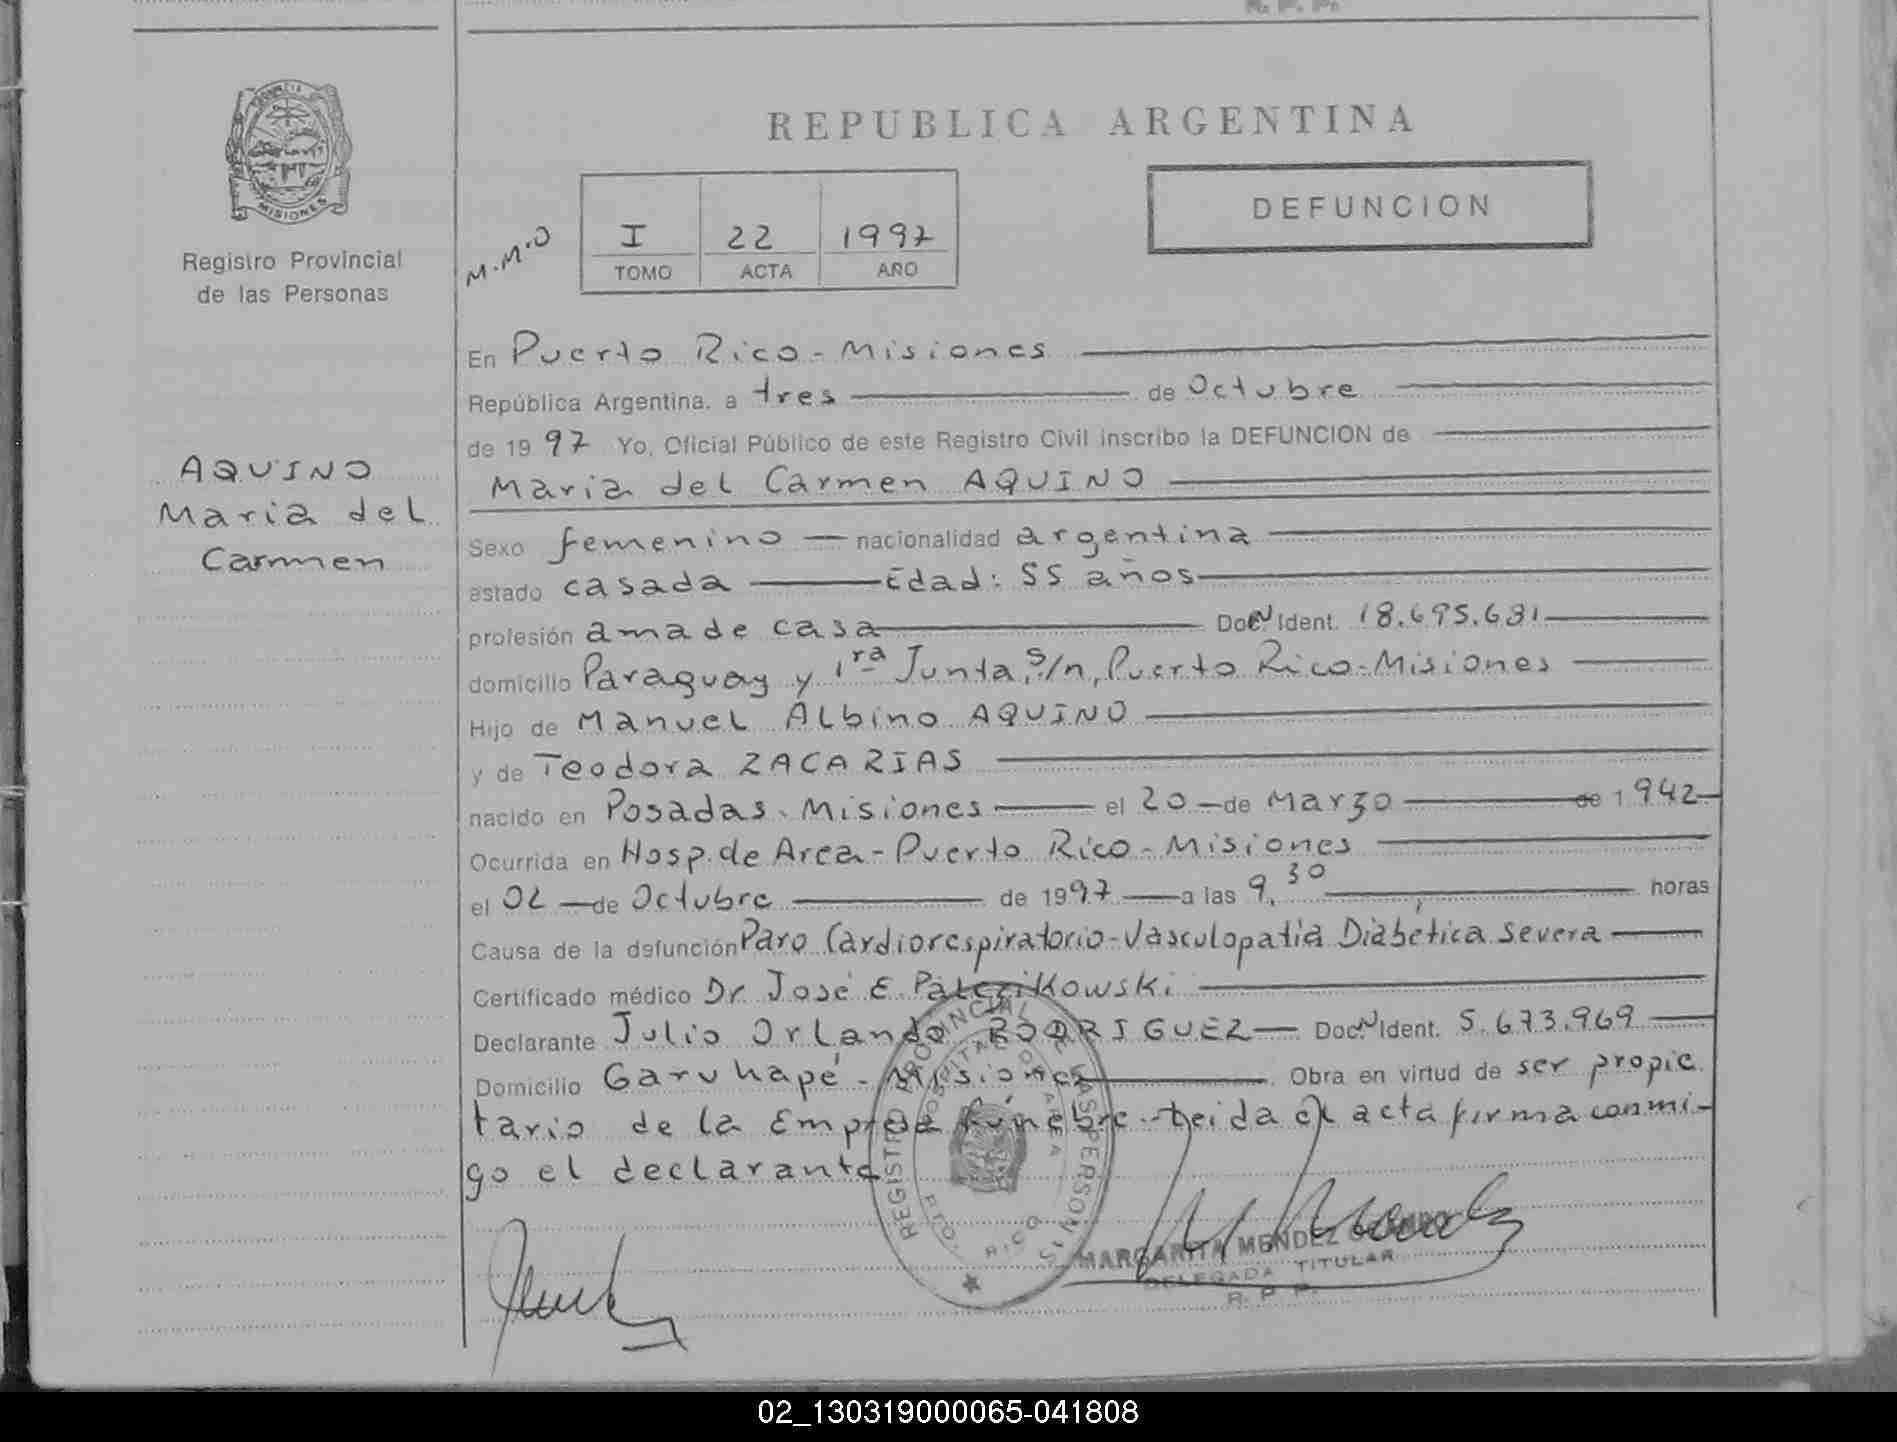 REPUBLICA ARGENTINA
PROVINCIA DE
MISIONES
Registro Provincial
de las Personas
M.M.O
I 22 1997
TOMO ACTA AÑO
DEFUNCION
AQUINO
Maria del
Carmen
En Puerto Rico - Misiones
República Argentina, a tres de Octubre
de 1997 Yo, Oficial Público de este Registro Civil inscribo la DEFUNCION de
Maria del Carmen AQUINO
Sexo femenino nacionalidad argentina
estado casada Edad: 55 años
profesión ama de casa Doc. N Ident. 18.695.631
domicilio Paraguay y 1ra Junta, s/n, Puerto Rico - Misiones
Hijo de Manuel Albino AQUINO
y de Teodora ZACARIAS
nacido en Posadas - Misiones el 20 de Marzo de 1942
Ocurrida en Hosp. de Area - Puerto Rico - Misiones
el 02 de Octubre de 1997 a las 9,30 horas
Causa de la defunción Paro Cardiorespiratorio - Vasculopatía Diabética severa
Certificado médico Dr. José E. Palczikowski
Declarante Julio Orlando RODRIGUEZ Doc. N Ident. 5.673.969
Domicilio Garuhapé - Misiones Obra en virtud de ser propie
tario de la Empresa fúnebre - Leida el acta firma conmi-
go el declarante
REGISTRO PROVINCIAL DE LAS PERSONAS
HOSPITAL DE AREA
PTO. RICO
MARGARITA MENDEZ
DELEGADA TITULAR
R. P. P.
02_130319000065-041808